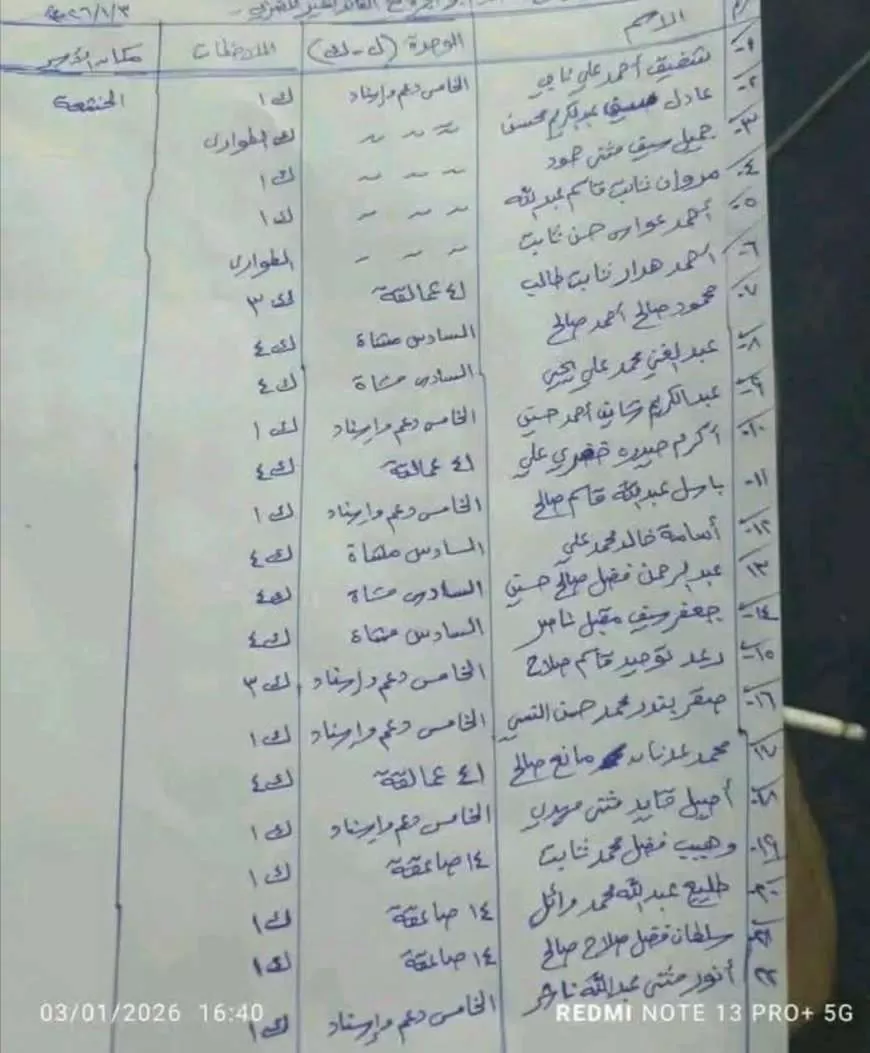 ٢٠٢٦/١/٣
م الاسم الوحدة (ل-ك) الملاحظات مكان الأسر
١- شفيق أحمد علي ناجي الخامس دعم وإسناد ك ١ الخشعة
٢- عادل عبدالكريم محسن ~ ~ ~ ك الطوارئ
٣- جميل سيف مثنى حمود ~ ~ ~ ك ١
٤- مروان ثابت قاسم عبدالله ~ ~ ~ ك ١
٥- أحمد عواس حسن ثابت ~ ~ ~ الطوارئ
٦- أحمد هدار ثابت طالب ٤١ عمالقة ك ٣
٧- محمود صالح أحمد صالح السادس مشاة ك ٤
٨- عبدالغني محمد علي يحيى السادس مشاة ك ٤
٩- عبدالكريم شايف أحمد حسين الخامس دعم وإسناد ك ١
١٠- أكرم علي ٤١ عمالقة ك ٤
١١- باسل عبدالله قاسم صالح الخامس دعم وإسناد ك ١
١٢- أسامة خالد محمد علي السادس مشاة ك ٤
١٣- عبدالرحمن فضل صالح حسين السادس مشاة ك ٤
١٤- جعفر سيف مقبل ناصر السادس مشاة ك ٤
١٥- رعد توحيد قاسم صلاح الخامس دعم وإسناد ك ٣
١٦- صقر بندر محمد حسن الخامس دعم وإسناد ك ١
١٧- محمد عدنان مانع صالح ٤١ عمالقة ك ٤
١٨- أصيل قايد مثنى مهدي الخامس دعم وإسناد ك ١
١٩- وهيب فضل محمد ثابت ١٤ صاعقة ك ١
٢٠- طليع عبدالله محمد وائل ١٤ صاعقة ك ١
٢١- سلطان فضل صلاح صالح ١٤ صاعقة ك ١
٢٢ أنور مثنى عبدالله ناشر الخامس دعم وإسناد ك ١
03/01/2026 16:40 REDMI NOTE 13 PRO+ 5G